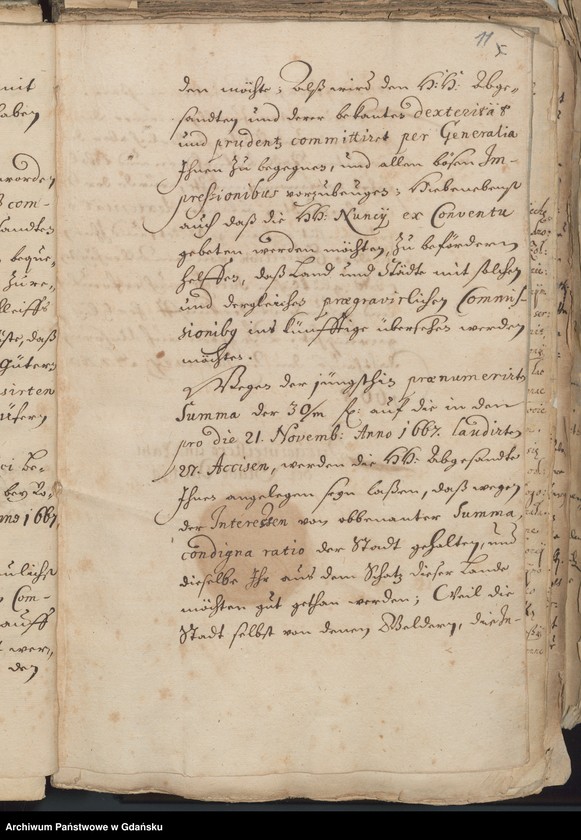 11
den möchte; Alß wird den H: H: Abge-
sandten und derer bekanten dexterität
und prudentz committiret per Generalia
Ihnen zu begegnen, und allen bösen Im-
pressionibus vorzubeugen; Hiebenebenst
auch daß die HH: Nuncij ex Conventu
gebeten werden möchten, zu befördern
helffen, daß Land und Städte mit solchen
und dergleichen prægravirlichen Commis-
sionibus ins künfftige übersehen werden
möchten.
Wegen der jüngsthin prænumerirten
Summa der 30/m f: auf die in dem
pro die 21. Novemb: Anno 1667. laudirten
27. Accisen, werden die HH: Abgesandte
Ihnen angelegen seyn laßen, daß wegen
der Interessen von obbenanter Summa,
condigna ratio der Stadt gehalten, und
dieselbe Ihr aus dem Schatz dieser Lande
möchten gut gethan werden; Weil die
Stadt selbst von denen Geldern, die In-